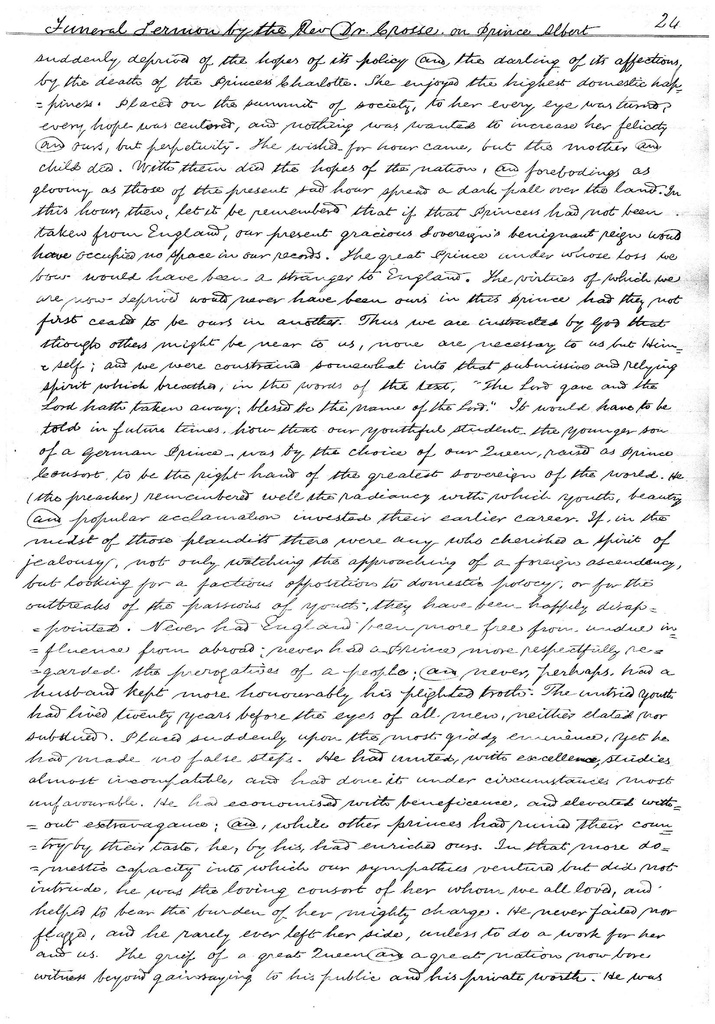 Funeral Sermon by the Rev Dr. Crosse on Prince Albert 24
suddenly deprived of the hopes of its policy and the darling of its affections,
by the death of the Princess Charlotte. She enjoyed the highest domestic hap=
=piness. Placed on the summit of society, to her every eye was turned,
every hope was centered, and nothing was wanted to increase her felicity
and ours, but perpetuity. The wished for hour came, but the mother and
child died. With them died the hopes of the nation, and forebodings as
gloomy as those of the present sad hour spread a dark pall over the land. In
this hour, then, let it be remembered that if that Princess had not been
taken from England, our present gracious Sovereign's benignant reign would
have occupied no space in our records. The great Prince under whose loss we
bow would have been a stranger to England. The virtues of which we
are now deprived would never have been ours in this Prince had they not
first ceased to be ours in another. Thus we are instructed by God that
though others might be near to us, none are necessary to us but Him=
=self; and we were constrained somewhat into that submissive and relying
spirit which breathed, in the words of the text, "The Lord gave and the
Lord hath taken away; blessed be the name of the Lord." It would have to be
told in future times, how that our youthful student, the younger son
of a german Prince was by the choice of our Queen, raised as Prince
Consort, to be the right hand of the greatest sovereign of the world. He
(the preacher) remembered well the radiancy with which youth, beauty
and popular acclamation invested their earlier career. If, in the
midst of those plaudits there were any who cherished a spirit of
jealousy, not only watching the approaching of a foreign ascendancy,
but looking for a factious opposition to domestic policy, or for the
outbreaks of the passions of youth, they have been happily disap=
=pointed. Never had England been more free from undue in=
=fluence from abroad; never had a Prince more respectfully re=
=garded the prerogatives of a people; and never, perhaps, had a
husband kept more honourably his plighted troth. The untried youth
had lived twenty years before the eyes of all men, neither elated nor
subdued. Placed suddenly upon the most giddy eminence, yet he
had made no false steps. He had united, with excellence, studies
almost incompatible, and had done it under circumstances most
unfavourable. He had economised with beneficence, and elevated with=
=out extravagance; and, while other princes had ruined their coun=
=try by their taste, he, by his, had enriched ours. In that more do=
=mestic capacity into which our sympathies ventured but did not
intrude, he was the loving consort of her whom we all loved, and
helped to bear the burden of her mighty charge. He never failed nor
flagged, and he rarely ever left her side, unless to do a work for her
and us. The grief of a great Queen and a great nation now bore
witness beyond gainsaying to his public and his private worth. He was